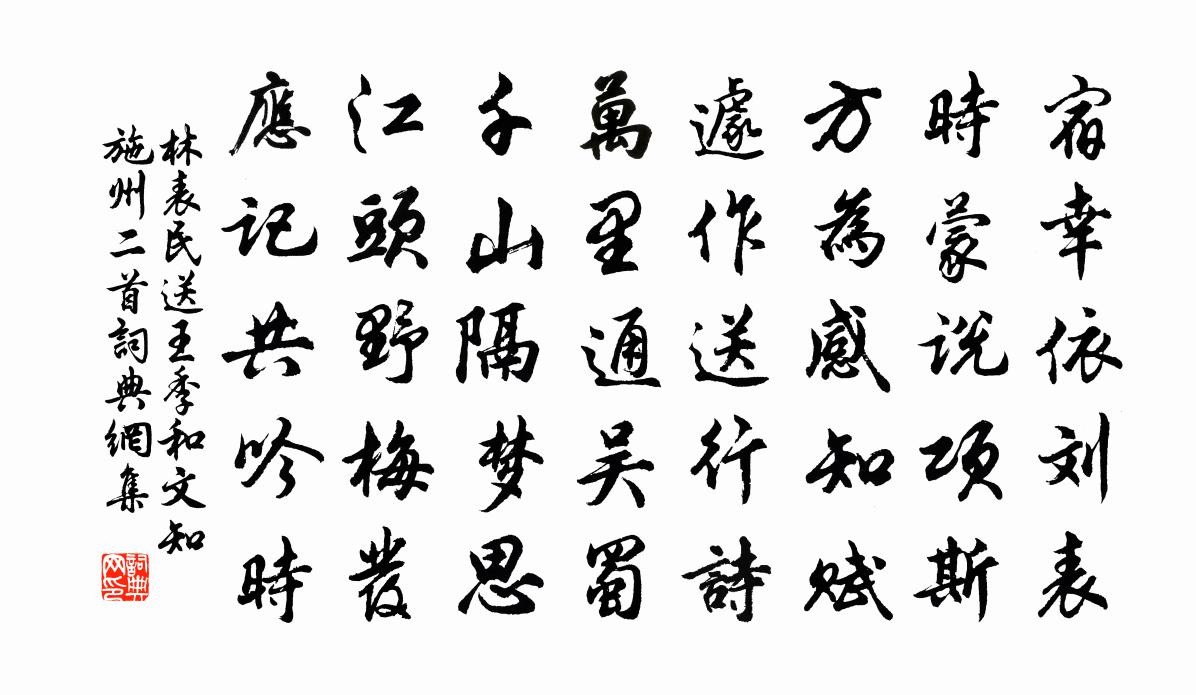 宿幸依刘表
時蒙说项斯
方為感知赋
遽作送行詩
萬里通吴蜀
千山隔梦思
江頭野梅發
應记共吟時
林表民送王季和文知
施州二首詞典網集
詞典
网印